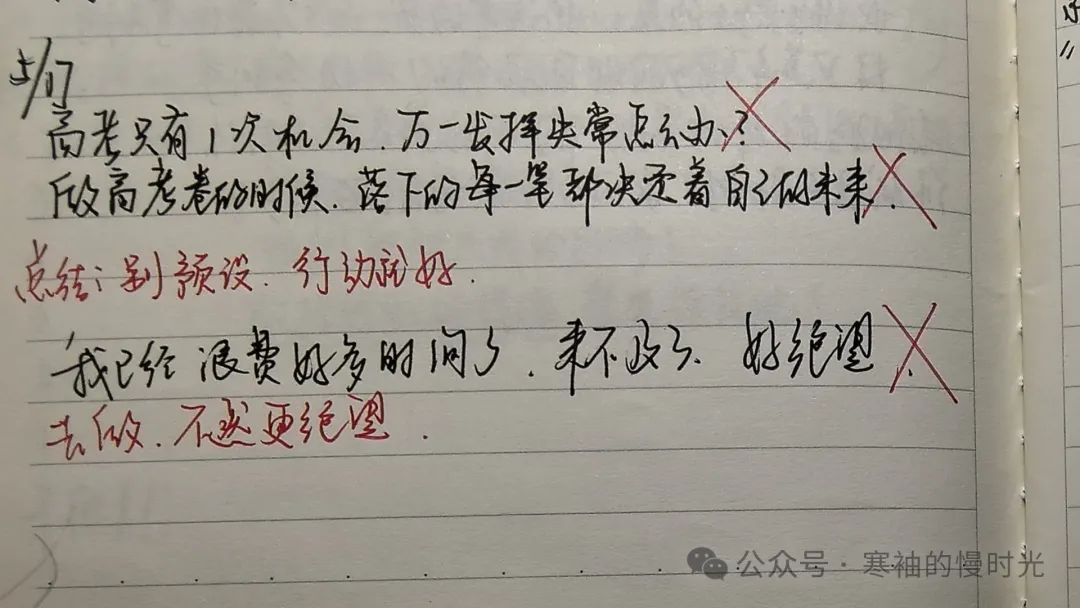 5/17
高考只有1次机会.万一发挥失常怎么办?
做高考卷的时候.落下的每一笔都决定着自己的未来.
总结:别预设.行动就好.
我已经浪费好多时间了.来不及了.好绝望.
去做.不然更绝望.
公众号·寒袖的慢时光